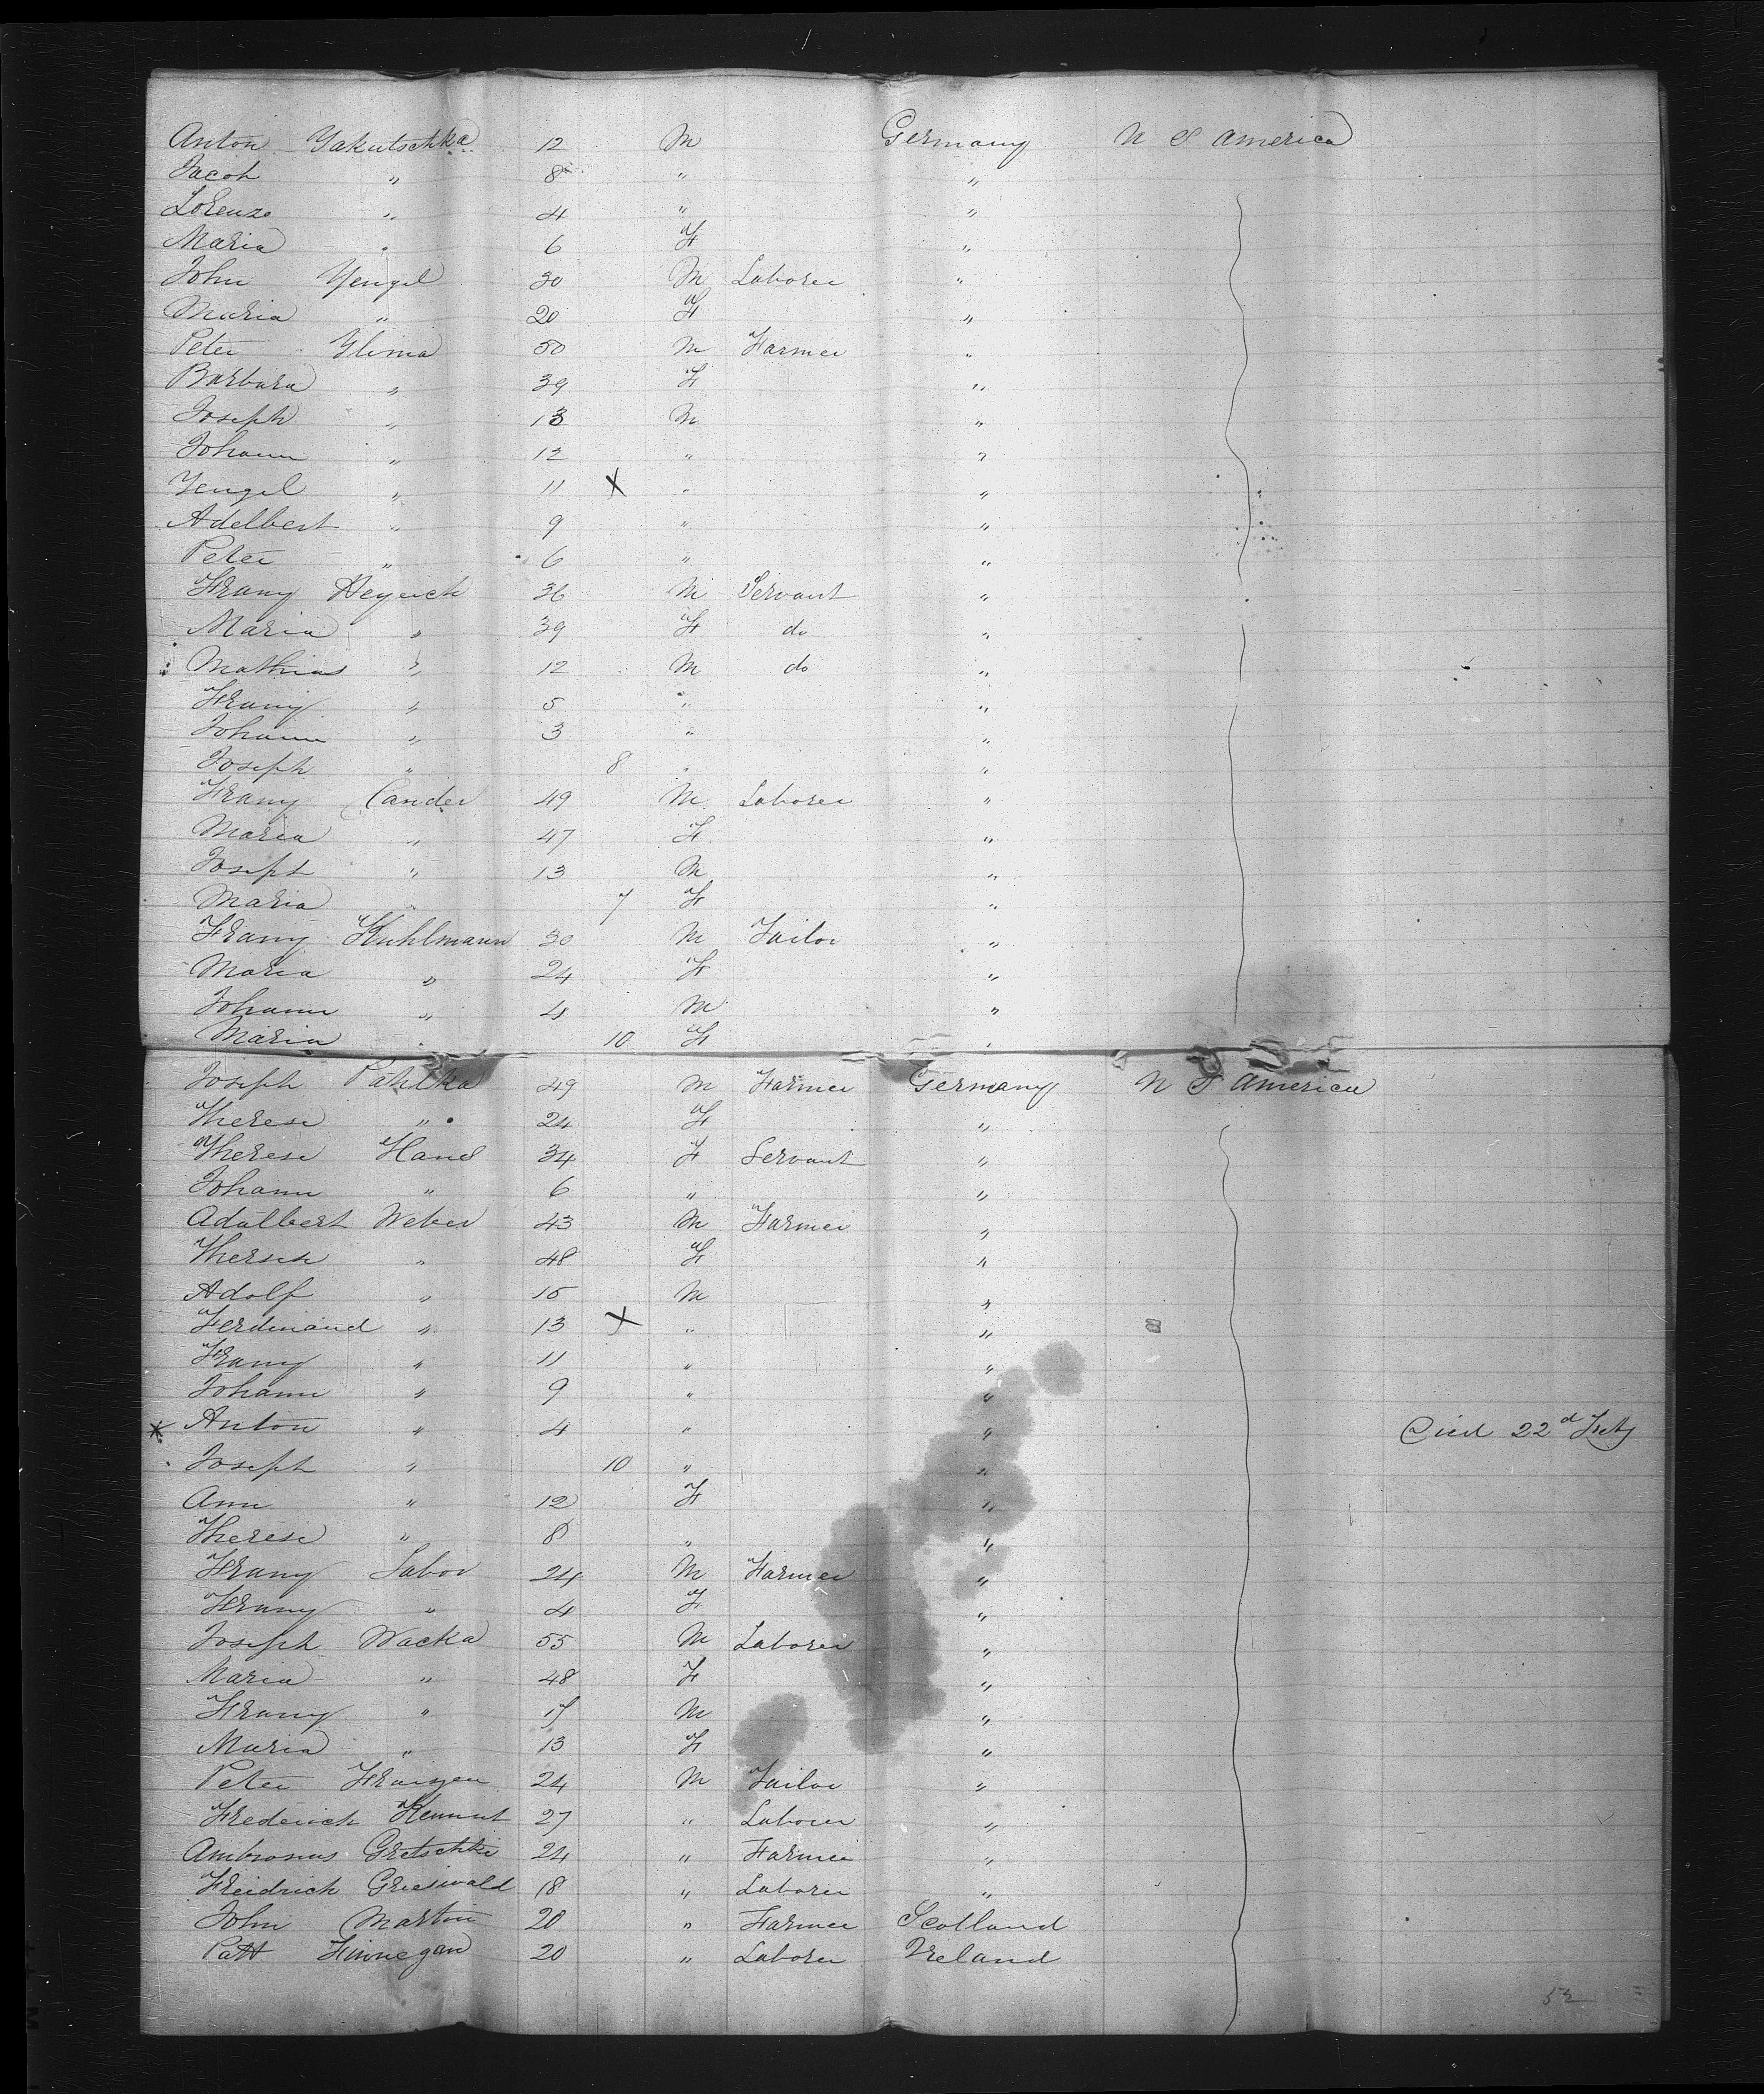 Anton Yakutschka 12 M Germany U S America
Jacob " 8 " "
Lorenzo " 4 " "
Maria " 6 F "
John Yengel 30 M Laborer "
Maria " 20 F "
Peter Yhma 50 M Farmer "
Barbara " 39 F "
Joseph " 13 M "
Johann " 12 " "
Yengel " 11 X " "
Adelbert " 9 " "
Peter " 6 " "
Franz Heyrich 36 M Servant "
Maria " 39 F do "
Mathias " 12 M do "
Franz " 5 " "
Johann " 3 " "
Joseph " 8 " "
Franz Cander 49 M Laborer "
Maria " 47 F "
Joseph " 13 M "
Maria " 7 F "
Franz Kuhlmann 30 M Tailor "
Maria " 24 F "
Johann " 4 M "
Maria " 10 F "
Joseph Pahlka 49 M Farmer Germany U S America
Therese " 24 F "
Therese Hand 34 F Servant "
Johann " 6 " "
Adalbert Weber 43 M Farmer "
Therese " 48 F "
Adolf " 15 M "
Ferdinand " 13 X " "
Franz " 11 " "
Johann " 9 " "
X Anton " 4 " " Died 22d
Joseph " 10 " "
Ann " 12 F "
Therese " 8 " "
Franz Sabor 24 M Farmer "
Franz " 4 F "
Joseph Wacka 55 M Laborer "
Maria " 48 F "
Franz " 17 M "
Maria " 13 F "
Peter Franzen 24 M Tailor "
Frederick 27 " Laborer "
Ambronus Gretschki 24 " Farmer "
Freidrich Grieswald 18 " Laborer "
John Martin 20 " Farmer Scotland
Patt Finnegan 20 " Laborer Ireland
52